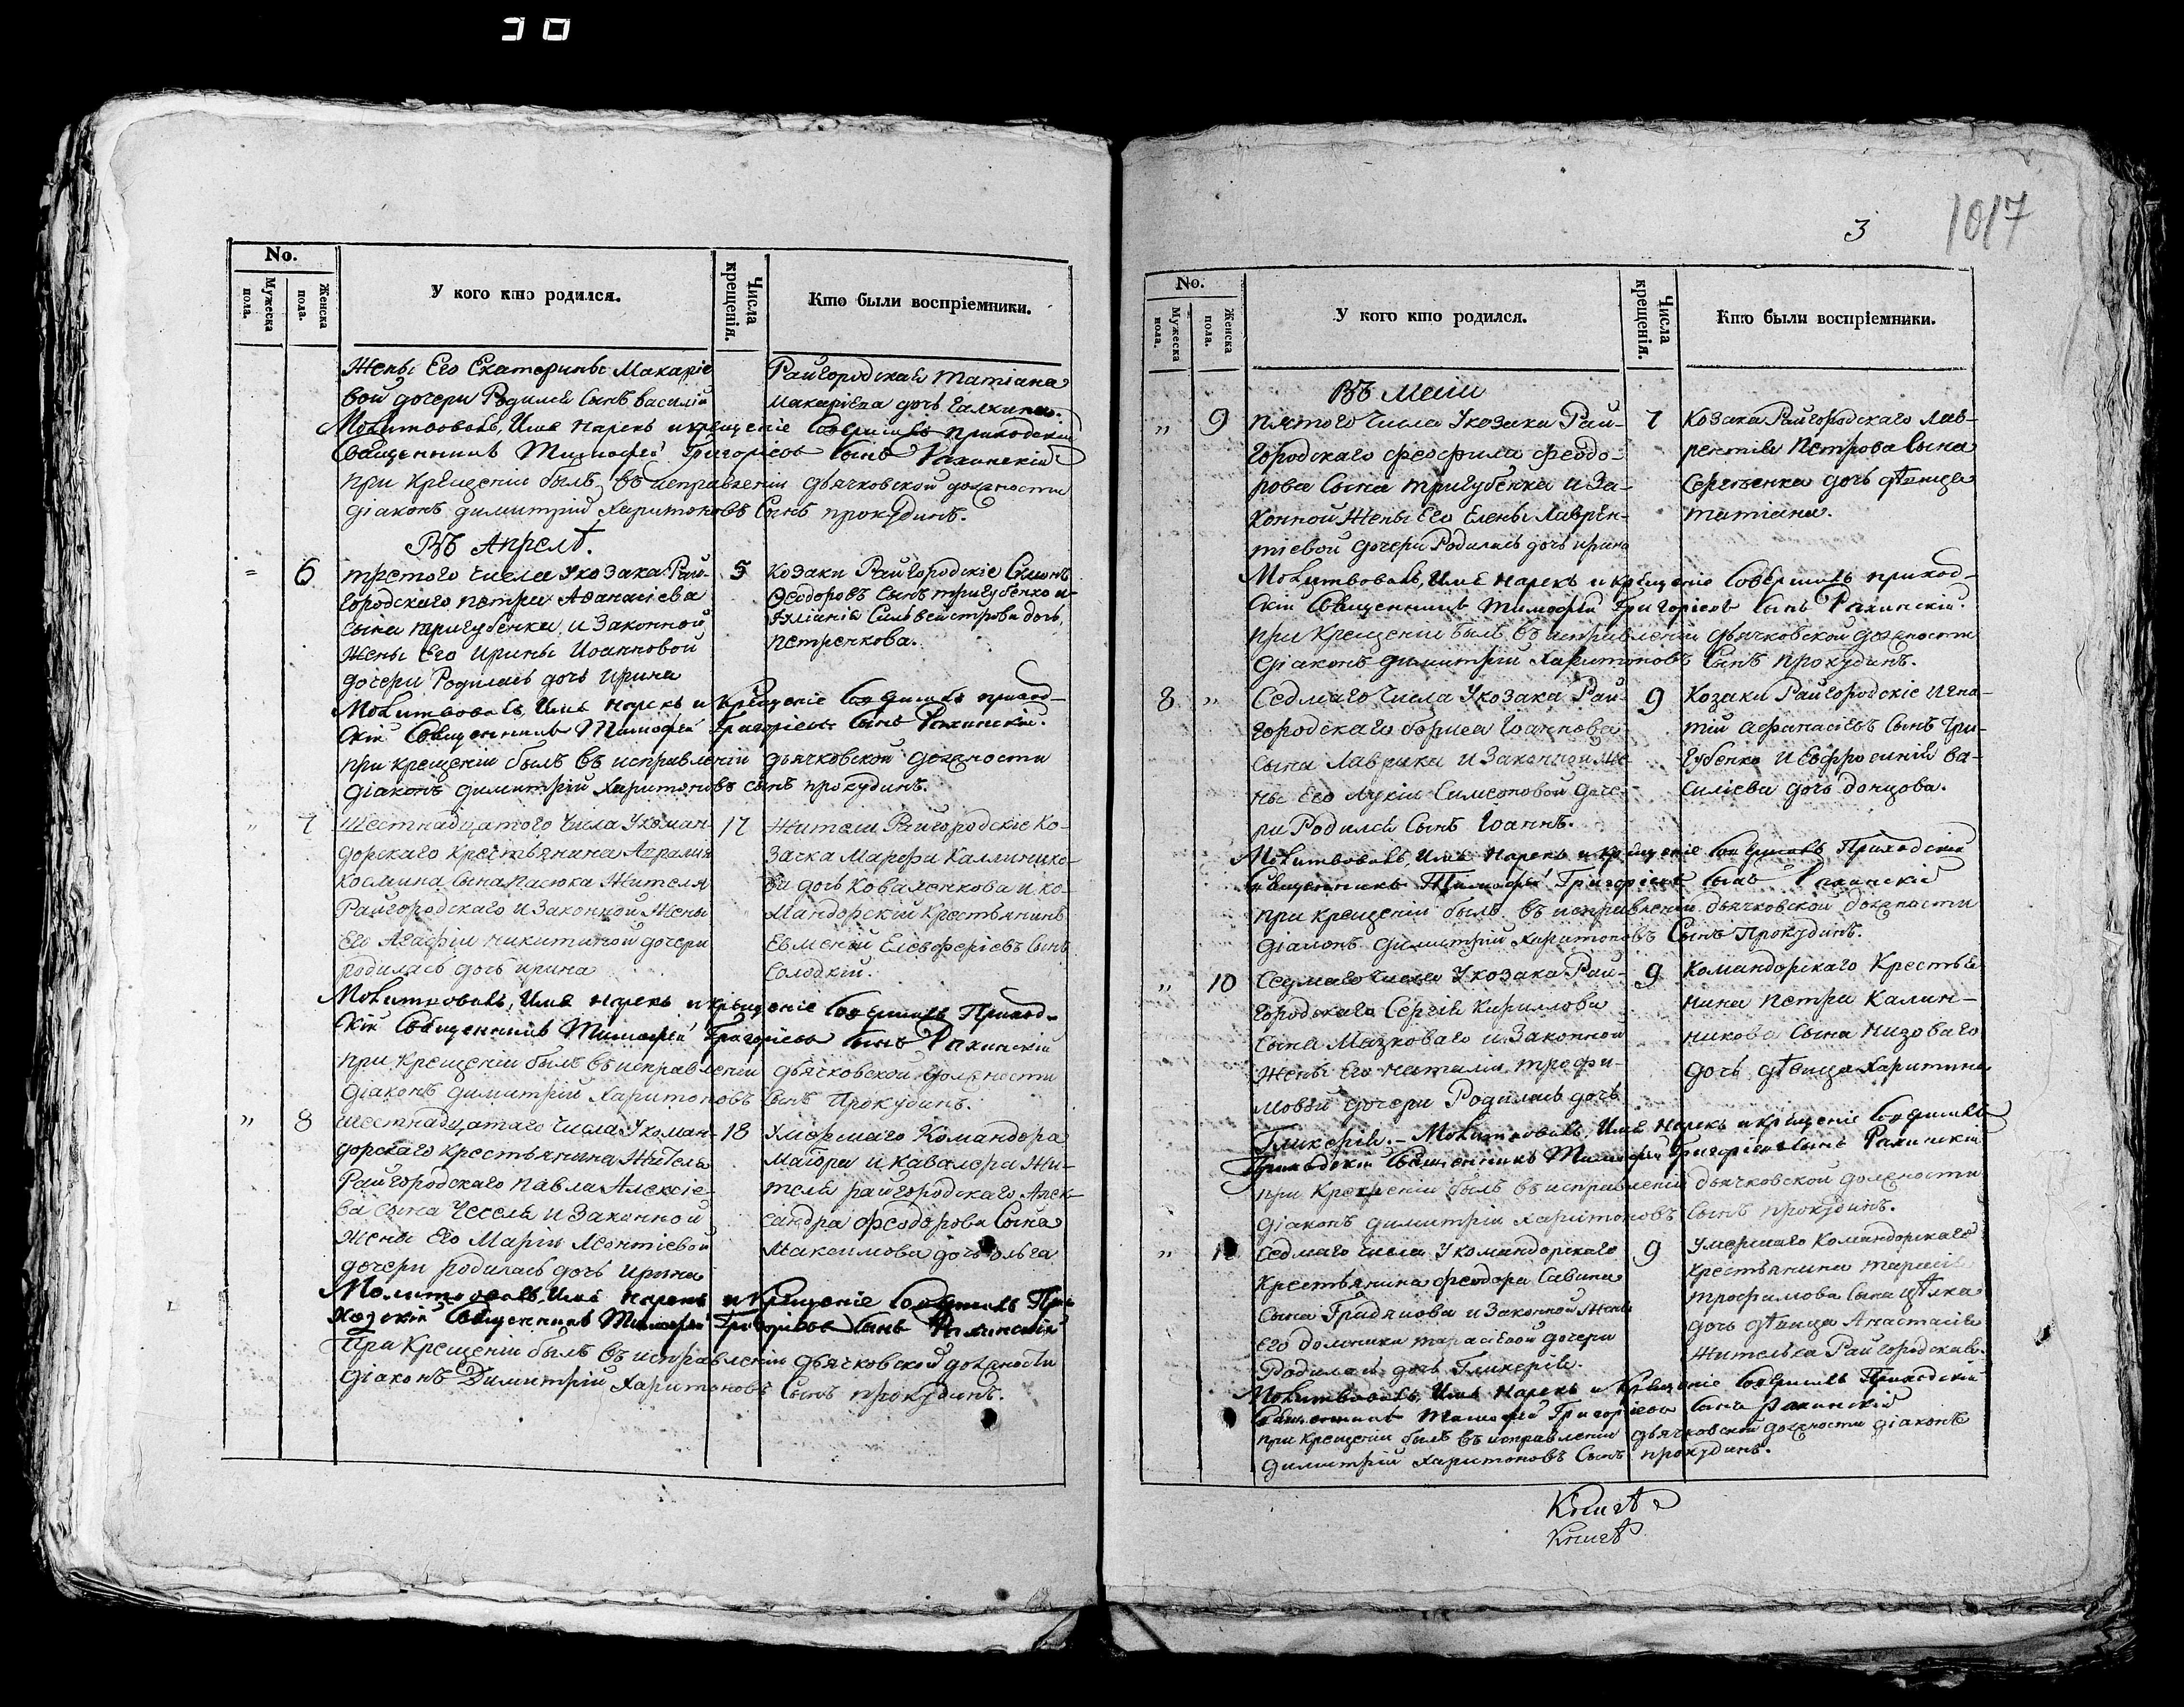 30
No.
Мужеска пола.
Женска пола.
У кого кто родился.
Числа крещенія.
Кто были воспріемники.
Жены Его Екатерины Макаріе
вой дочери Родился Сынъ Василій
Райгородская Татіана
Макаріева дочь Галкина.
Молитвовалъ, Имя Нарекъ и крещеніе Совершилъ Приходскій
Священникъ Тимофей Григоріевъ Сынъ Рахинскій
при Крещеніи былъ въ исправленіи дьячковской должности
діаконъ димитрій Харитоновъ Сынъ прокудинъ.
Въ Апрелѣ.
= 6 третого числа У козака Рай- 5
городскаго петра Афанасіева
сына тригубенка, и Законной
Жены Его Ирины Иоанновой
дочери Родилась дочь Ирина
Козаки Райгородскіе Симонъ
Ѳеодоровъ сынъ тригубенко и
Сильвейстрова дочь,
петренкова.
Молитвовалъ, Имя Нарекъ и Крещеніе Совершилъ приход-
скій Священникъ Тимофей Григоріевъ Сынъ Рахинскій.
при крещеніи былъ въ исправленіи дьячковской должности
діаконъ димитрій Харитоновъ сынъ прокудинъ.
„ 7 Шестнадцатого Числа У коман- 17
дорскаго крестьянина
Космина Сына Пасюка Жителя
Райгородскаго и Законной Жены
Его Агафіи никитиной дочери
родилась дочь ирина
Жители Райгородскіе Ко-
зачка Марфа Каллинико-
ва дочь Коваленкова и ко-
мандорскій Крестьянинъ
Евменій Елевферіевъ Сынъ
Солодкій.
Молитвовалъ, Имя Нарекъ и крещеніе Совершилъ Приход-
скій Священникъ Тимофей Григоріевъ Сынъ Рахинскій
при Крещеніи былъ въ исправленіи дьячковской должности
діаконъ димитрій Харитоновъ Сынъ Прокудинъ.
„ 8 шестнадцатаго числа У коман- 18
дорскаго крестьянина Жителя
Райгородскаго Павла Алексіе-
ва сына Чеселя и Законной
жены Его Маріи Леонтіевой
дочери родилась дочь Ирина
Умершаго Командора
Маіора и Кавалера Жи-
теля райгородскаго Алек-
сандра Феодорова Сына
Максимова дочь ольга
Молитвовалъ, Имя Нарекъ и Крещеніе Совершилъ При-
ходскій Священникъ Тимофей Григоріевъ Сынъ Рахинскій
При Крещеніи былъ въ исправленіи дьячковской должности
діаконъ Димитрій Харитоновъ Сынъ прокудинъ.
3
1017
No.
Мужеска пола.
Женска пола.
У кого кто родился.
Числа крещенія.
Кто были воспріемники.
Въ Маіи
„ 9 пятого Числа У козака Рай- 7
городскаго феофила феодо-
рова Сына тригубенка и За-
конной Жены Его Елены Лаврен-
тіевой дочери Родилась дочь ирина
Козака Райгородскаго Лав-
рентія Петрова Сына
Сергѣенка дочь дѣвица
татіана.
Молитвовалъ, Имя Нарекъ и крещеніе Совершилъ приход-
скій Священникъ Тимофей Григоріевъ Сынъ Рахинскій.
при Крещеніи былъ въ исправленіи дьячковской должности
діаконъ димитрій Харитоновъ Сынъ прокудинъ.
8 „ Седмаго Числа У козака Рай- 9
городскаго бориса Іоаннова
сына Лаврика и Законной Же-
ны Его Лукіи Симеоновой доче-
ри Родился Сынъ Іоаннъ.
Козаки Райгородскіе Игна-
тій афанасіевъ Сынъ Три-
губенко и Евфросинія Ва-
силіева дочь донцова.
Молитвовалъ, Имя Нарекъ и крещеніе Совершилъ Приходскій
Священникъ Тимофей Григоріевъ Сынъ Рахинскій
при крещеніи былъ въ исправленіи дьячковской должности
діаконъ димитрій Харитоновъ Сынъ Прокудинъ.
„ 10 Седмаго числа У козака Рай- 9
городскаго Сергія Кириллова
сына Мазковаго и Законной
Жены Его наталіи трофи-
мовой дочери Родилась дочь
Командорскаго Крестья-
нина петра Калин-
никова Сына Низоваго
дочь дѣвица Харитина
Гликерія. – Молитвовалъ, Имя Нарекъ и крещеніе Совершилъ
Приходскій Священникъ Тимофей Григоріевъ Сынъ Рахинскій
при Крещеніи былъ въ исправленіи дьячковской должности
діаконъ димитрій Харитоновъ Сынъ прокудинъ.
„ Седмаго числа У командорскаго 9
крестьянина феодора Савина
сына Гридянова и Законной Жены
Его домники тарасіевой дочери
Родилась дочь Гликерія.
Умершаго Командорскаго
крестьянина тарасія
трофимова Сына
дочь дѣвица Анастасія
Жителька Райгородская.
Молитвовалъ, Имя Нарекъ и Крещеніе Совершилъ Приходскій
Священникъ Тимофей Григоріевъ Сынъ Рахинскій
при крещеніи былъ въ исправленіи дьячковской должности діаконъ
димитрій Харитоновъ Сынъ прокудинъ.
Книгѣ
Книгѣ